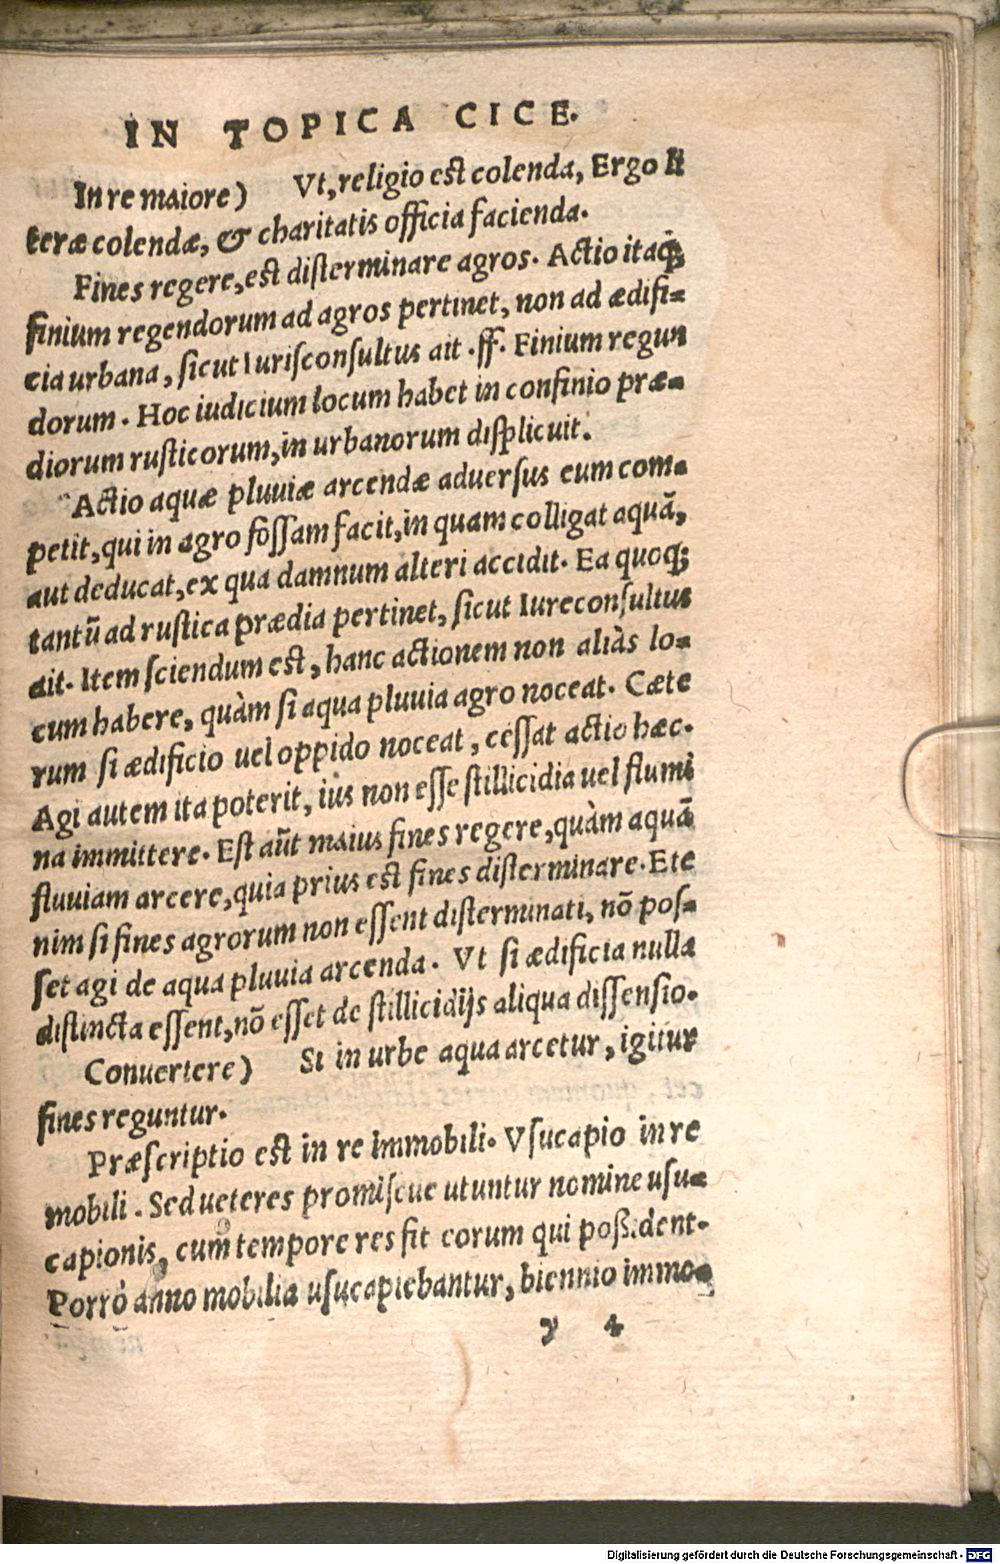 IN TOPICA CICE.
In re maiore) Vt, religio est colenda, Ergo li
teræ colendæ, & charitatis officia facienda.
Fines regere, est disterminare agros. Actio itaq;
finium regendorum ad agros pertinet, non ad ædifi-
cia urbana, sicut Iurisconsultus ait .ff. Finium regun
dorum. Hoc iudicium locum habet in confinio præ-
diorum rusticorum, in urbanorum displicuit.
Actio aquæ pluuiæ arcendæ aduersus eum com-
petit, qui in agro fossam facit, in quam colligat aquã,
aut deducat, ex qua damnum alteri accidit. Ea quoq;
tantũ ad rustica prædia pertinet, sicut Iureconsultus
ait. Item sciendum est, hanc actionem non aliàs lo-
cum habere, quàm si aqua pluuia agro noceat. Cæte
rum si ædificio uel oppido noceat, cessat actio hæc.
Agi autem ita poterit, ius non esse stillicidia uel flumi
na immittere. Est aũt maius fines regere, quàm aquã
fluuiam arcere, quia prius est fines disterminare. Ete
nim si fines agrorum non essent disterminati, nõ pos-
set agi de aqua pluuia arcenda. Vt si ædificia nulla
distincta essent, nõ esset de stillicidijs aliqua dissensio.
Conuertere) Si in urbe aqua arcetur, igitur
fines reguntur.
Præscriptio est in re immobili. Vsucapio in re
mobili. Sed ueteres promiscue utuntur nomine usu-
capionis, cum tempore res fit eorum qui possident.
Porrò anno mobilia usucapiebantur, biennio immo-
y 4
Digitalisierung gefördert durch die Deutsche Forschungsgemeinschaft - DFG